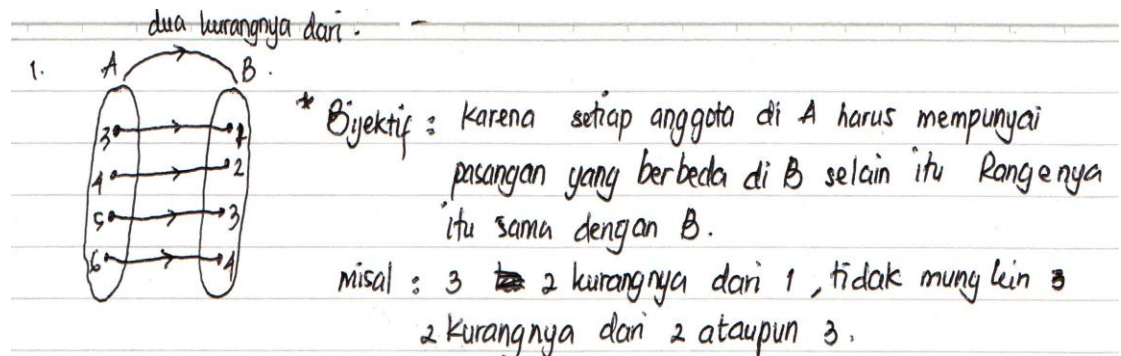 dua kurangnya dari.
1. A B.
3 1
4 2
5 3
6 4
* Bijektif : Karena setiap anggota di A harus mempunyai
pasangan yang berbeda di B selain itu Rangenya
itu sama dengan B.
misal : 3 2 kurangnya dari 1, tidak mungkin 3
2 kurangnya dari 2 ataupun 3.